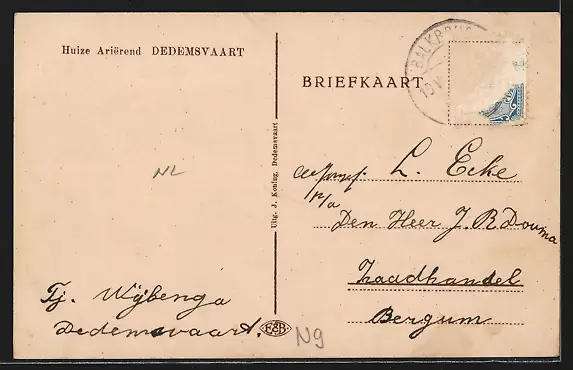 Huize Ariërend DEDEMSVAART
BALKBRUG
BRIEFKAART
NL
Uitg. J. Koning, Dedemsvaart
L. Ecke
p/a
Den Heer J. R Douma
Zaadhandel
Bergum
Tj. Wijbenga
Dedemsvaart.
N9